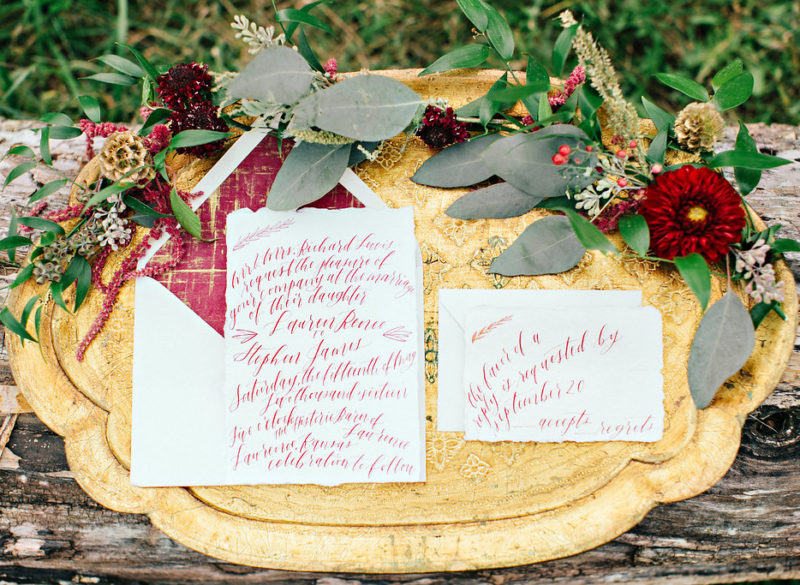 Mr & Mrs. Richard Lewis
request the pleasure of
your company at the marriage
of their daughter
Lauren Renee
to
Stephen James
Saturday, the fifteenth of
two thousand sixteen
five o'clock Barn of
the Lawrence
Lawrence, Kansas
celebration to follow
the favor of a
reply is requested by
september 20
accepts regrets